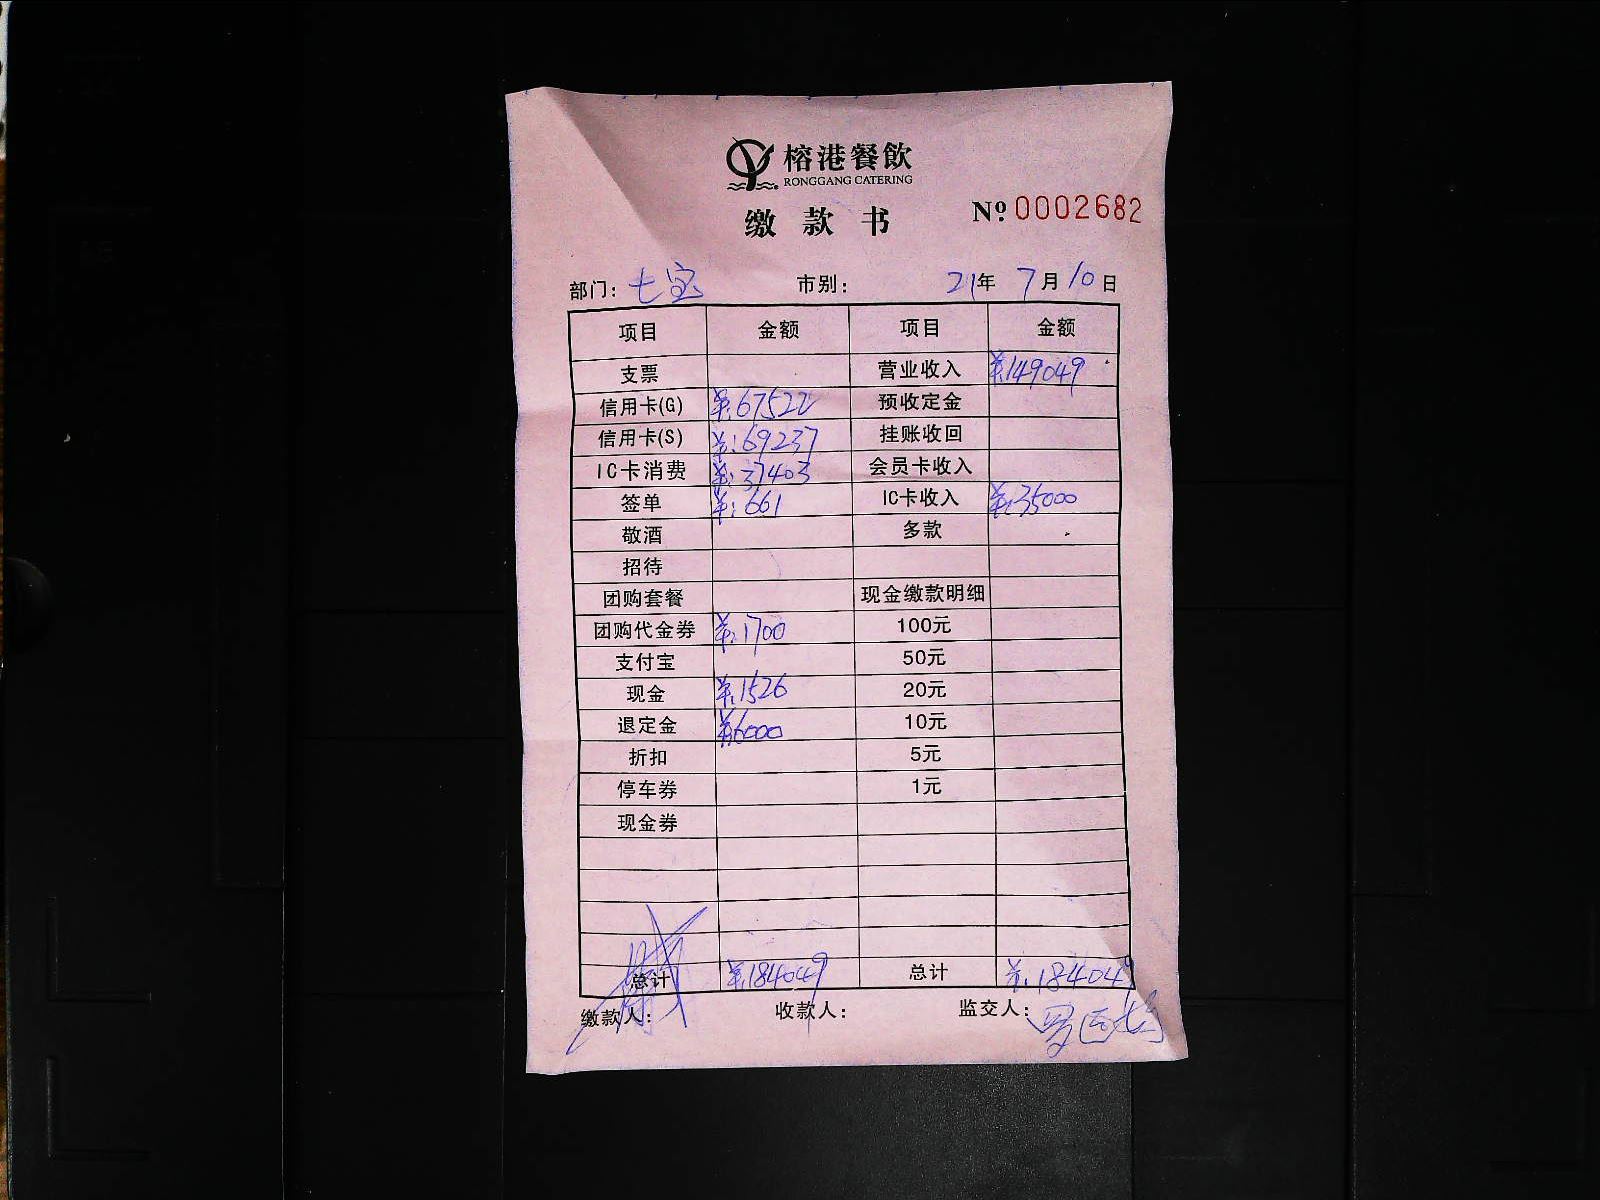 榕港餐飲
RONGGANG CATERING
缴款书 Nº 0002682
部门: 七宝 市别: 21年 7月10日
项目 金额 项目 金额
支票 营业收入 ¥:149049
信用卡(G) ¥:67522 预收定金
信用卡(S) ¥:69237 挂账收回
IC卡消费 ¥:37403 会员卡收入
签单 ¥:661 IC卡收入 ¥:35000
敬酒 多款
招待
团购套餐 现金缴款明细
团购代金券 ¥:1700 100元
支付宝 50元
现金 ¥:1526 20元
退定金 ¥6000 10元
折扣 5元
停车券 1元
现金券
总计 ¥:184049 总计 ¥:184049
缴款人: 收款人: 监交人: